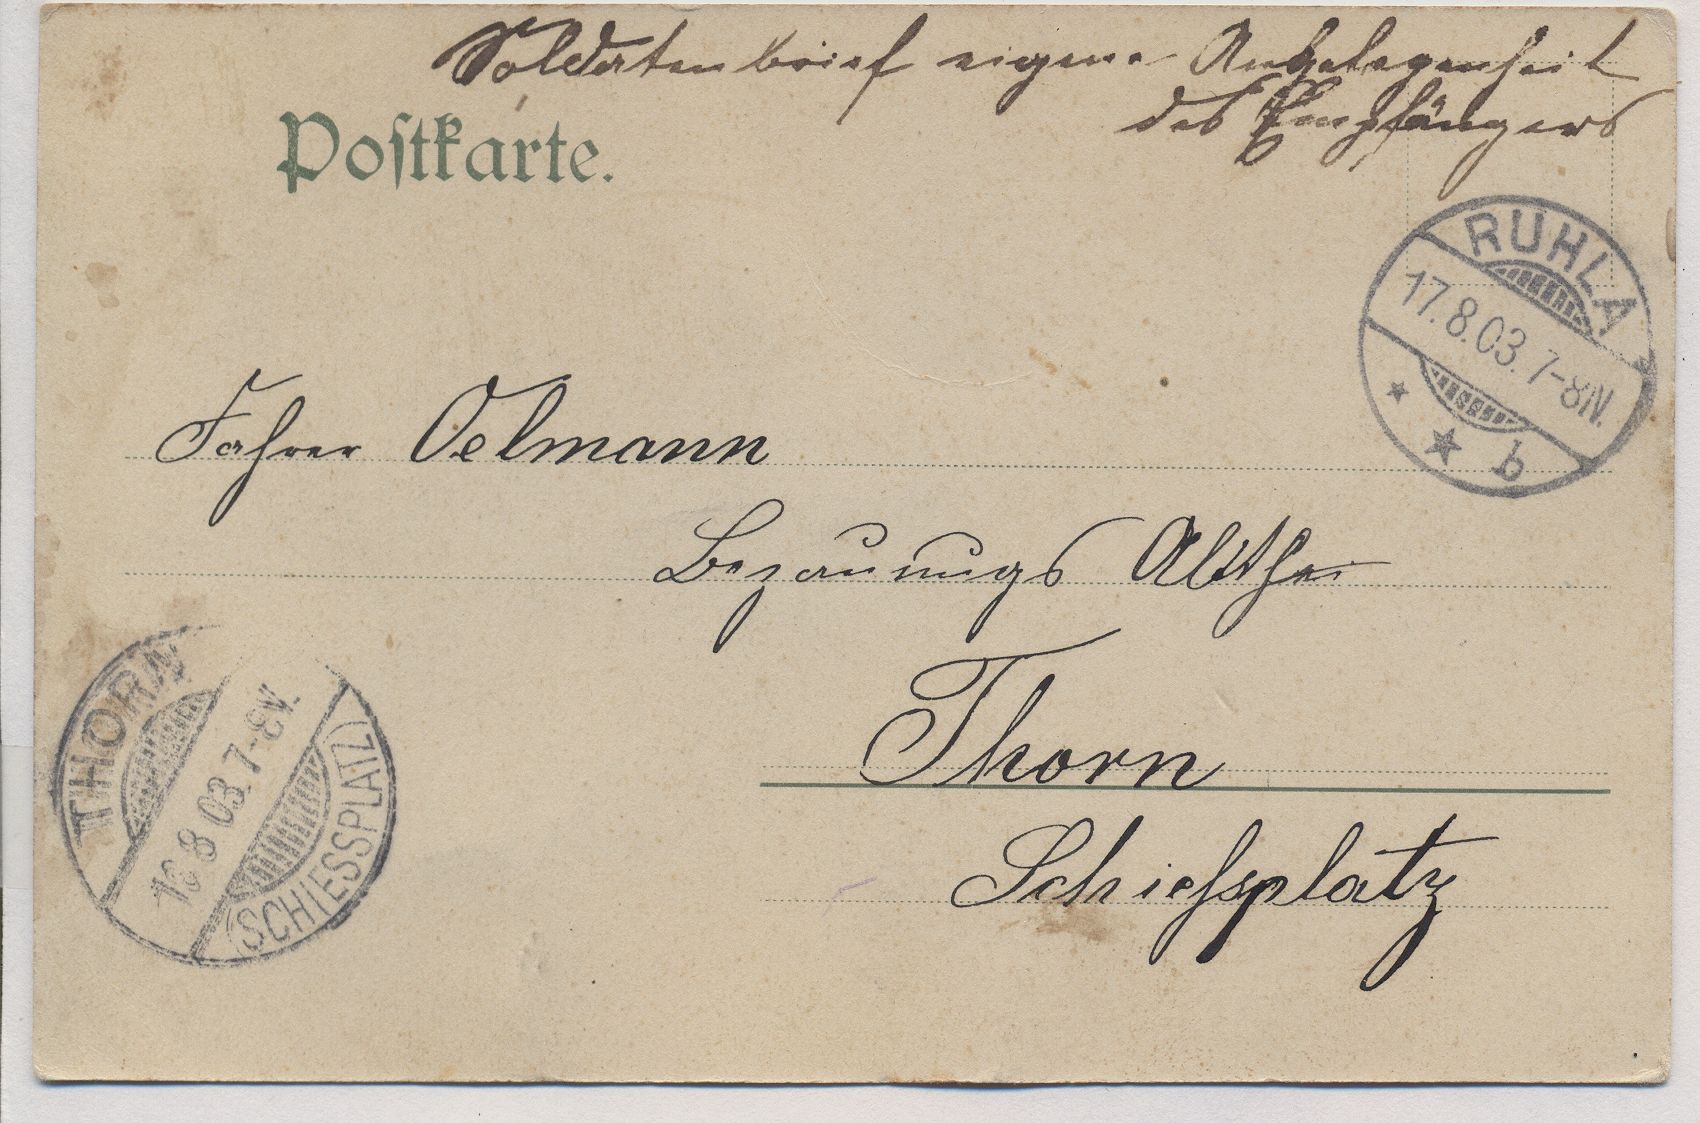 Soldatenbrief eigene Angelegenheit
des Empfängers
Postkarte.
RUHLA
17.8.03. 7-8N.
b
Fahrer Oelmann
Bespannungs Abthei
Thorn
Schießplatz
THORN
18 8 03. 7-8V.
(SCHIESSPLATZ)